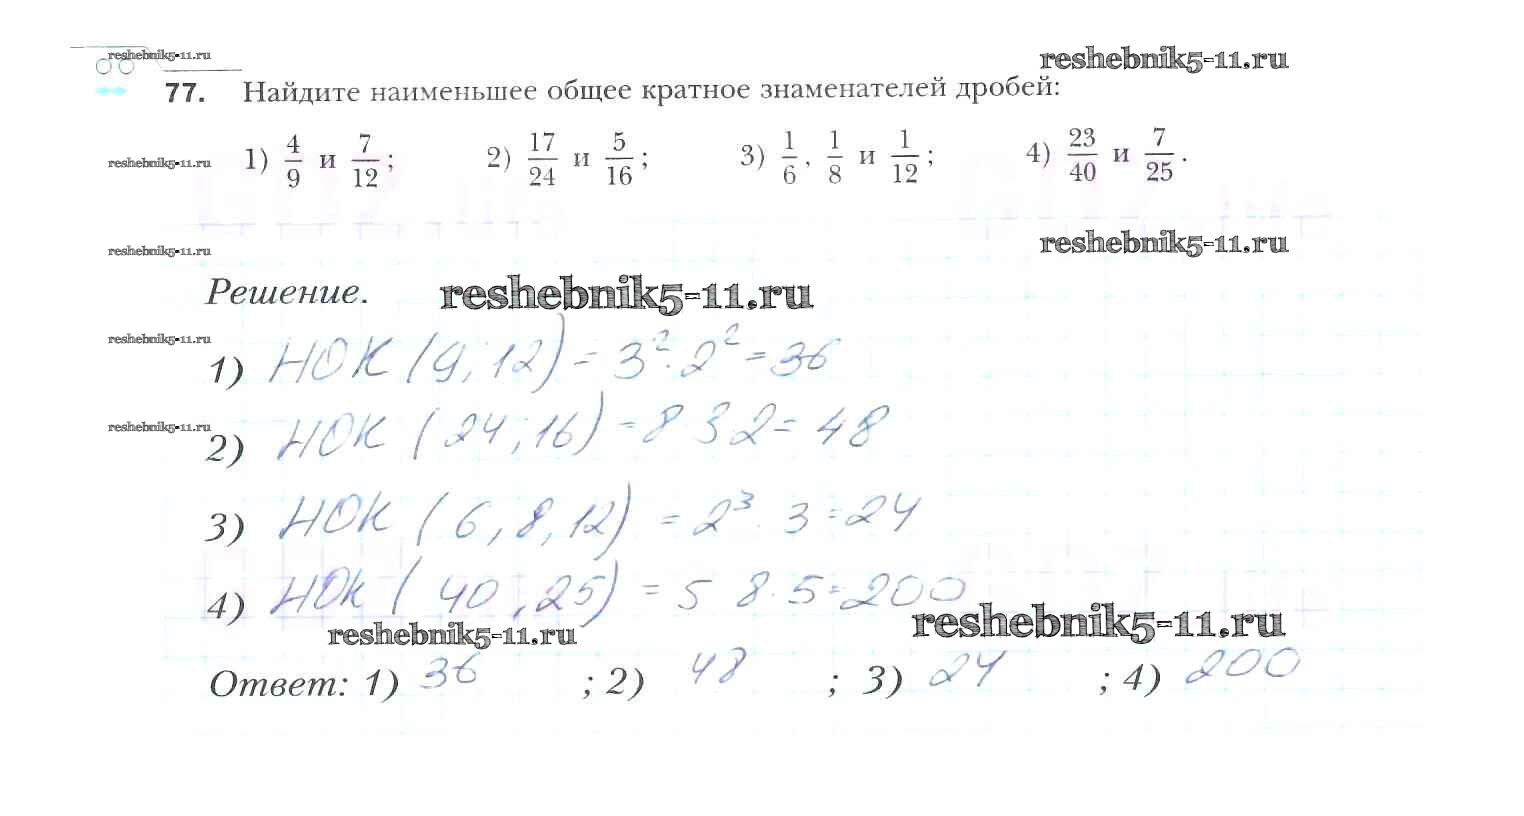 reshebnik5-11.ru reshebnik5-11.ru
77. Найдите наименьшее общее кратное знаменателей дробей:
1) 4/9 и 7/12; 2) 17/24 и 5/16; 3) 1/6, 1/8 и 1/12; 4) 23/40 и 7/25.
reshebnik5-11.ru
reshebnik5-11.ru reshebnik5-11.ru
Решение. reshebnik5-11.ru
reshebnik5-11.ru
1) НОК (9, 12) = 3² · 2² = 36
reshebnik5-11.ru
2) НОК (24, 16) = 8 · 3 2 = 48
3) НОК (6, 8, 12) = 2³ · 3 = 24
4) НОК (40, 25) = 5 8 · 5 = 200
reshebnik5-11.ru reshebnik5-11.ru
Ответ: 1) 36 ; 2) 48 ; 3) 24 ; 4) 200